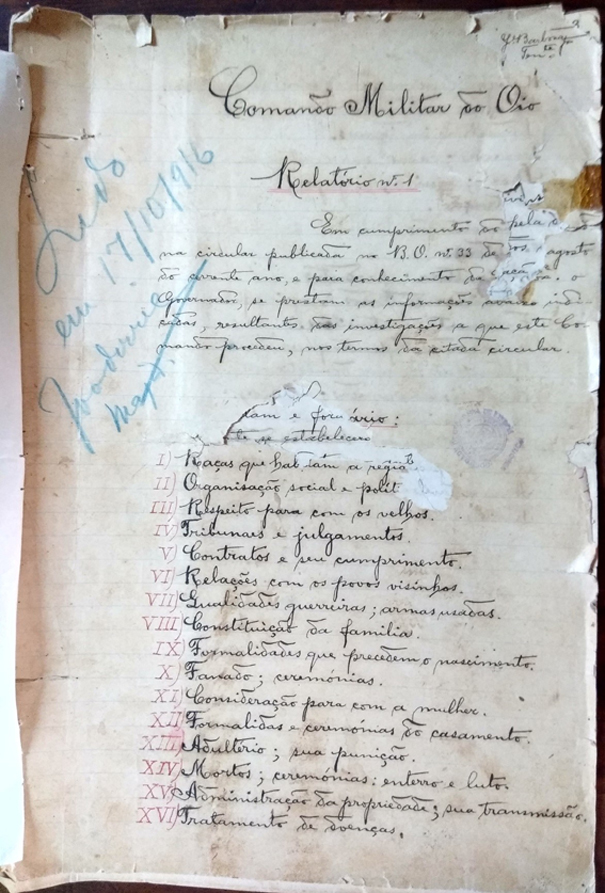 Comando Militar do Oio
Relatório nº 1
Lido
em 17/10/916
Em cumprimento do pela
na circular publicada no B.O. nº 33 de agosto
do corrente ano, e para conhecimento o
Governador, se prestam as informações abaixo indi-
cadas, resultantes das investigações a que este Co-
mando procedeu, nos termos da citada circular.
ário:
se estabelecero
I) Raças que habitam a regiã
II) Organisação social e polit
III) Respeito para com os velhos.
IV) Tribunaes e julgamentos.
V) Contratos e seu cumprimento.
VI) Relações com os povos visinhos.
VII) Qualidades guerreiras; armas usadas.
VIII) Constituição da familia.
IX) Formalidades que precedem o nascimento.
X) Fanado; ceremónias.
XI) Consideração para com a mulher.
XII) Formalidas e ceremónias do casamento.
XIII) Adultério; sua punição.
XIV) Mortos; ceremónias: enterro e luto.
XV) Administração da propriedade; sua transmissão.
XVI) Tratamento de doenças.